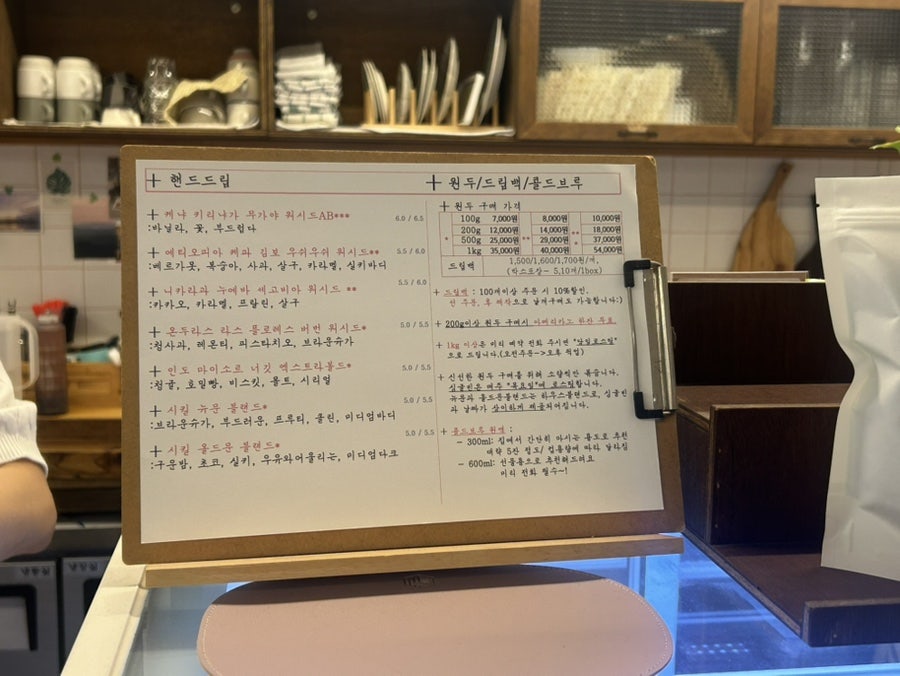 + 핸드드립
+ 케냐 키리냐가 무가야 워시드AB*** 6.0 / 6.5
:바닐라, 꽃, 부드럽다
+ 에티오피아 게와 김보 우쉬우쉬 워시드** 5.5 / 6.0
:베르가못, 복숭아, 사과, 살구, 카라멜, 실키바디
+ 니카라과 누에바 세고비아 워시드 ** 5.5 / 6.0
:카카오, 카라멜, 프랄린, 살구
+ 온두라스 라스 플로레스 버번 워시드* 5.0 / 5.5
:청사과, 레몬티, 피스타치오, 브라운슈가
+ 인도 마이소르 너깃 엑스트라볼드* 5.0 / 5.5
:청귤, 호밀빵, 비스킷, 몰트, 시리얼
+ 시킬 뉴문 블랜드* 5.0 / 5.5
:브라운슈가, 부드러운, 프루티, 클린, 미디엄바디
+ 시킬 올드문 블랜드* 5.0 / 5.5
:구운밤, 초코, 실키, 우유와어울리는, 미디엄다크
+ 원두/드립백/콜드브루
+ 원두 구매 가격
100g 7,000원 8,000원 10,000원
200g 12,000원 14,000원 18,000원
* 500g 25,000원 ** 29,000원 ** 37,000원
1kg 35,000원 40,000원 * 54,000원
드립백 1,500/1,600/1,700원/개,
(박스포장- 5,10개/1box)
+ 드립백 : 100개이상 주문 시 10%할인.
선 주문, 후 제작으로 낱개구매도 가능합니다:)
+ 200g이상 원두 구매시 아메리카노 한잔 무료
+ 1kg 이상은 미리 예약 전화 주시면 "당일로스팅"
으로 드립니다.(오전주문->오후 픽업)
+ 신선한 원두 구매를 위해 소량씩만 볶습니다.
싱글빈은 매주 "목요일"에 로스팅합니다.
뉴문과 올드문블랜드는 하우스블랜드로, 싱글빈
과 날짜가 상이하게 제공되어집니다.
+ 콜드브루 원액 :
- 300ml: 집에서 간단히 마시는 용도로 추천
대략 5잔 정도/ 컵용량에 따라 달라짐
- 600ml: 선물용으로 추천해드려요
미리 전화 필수~!
냉동실
냉장실